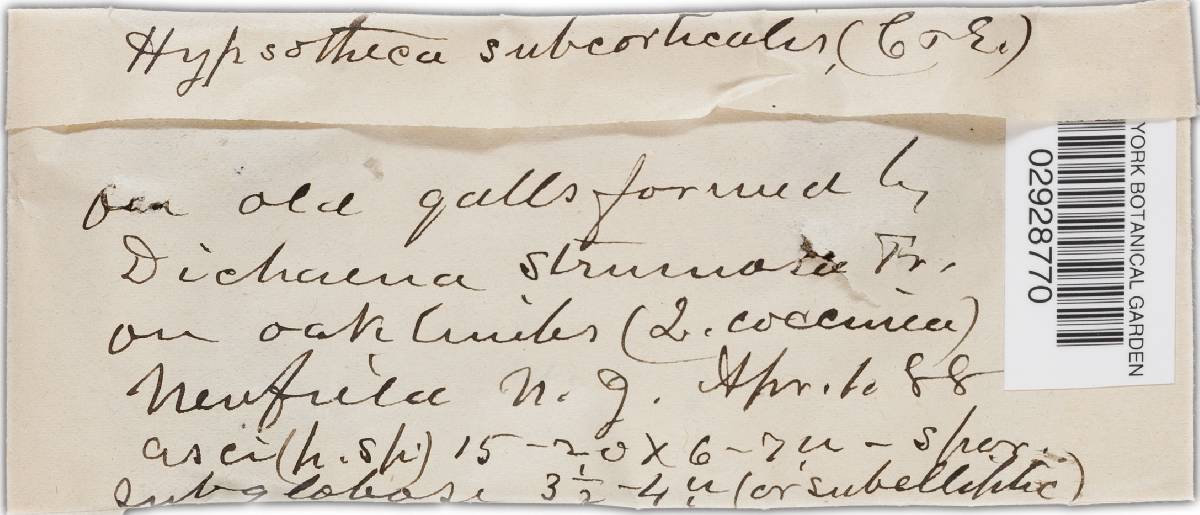 Hypsotheca subcorticalis, (C & E.)
on old galls formed by
Dichaena strumosa Fr.
on oak limbs (Q. coccinea)
Newfield N. J. Apr. 1. 88
asci (p. sp.) 15-20 x 6-7 µ - spor.
subglobose 3 1/2 - 4 µ (or subelliptic)
YORK BOTANICAL GARDEN
02928770